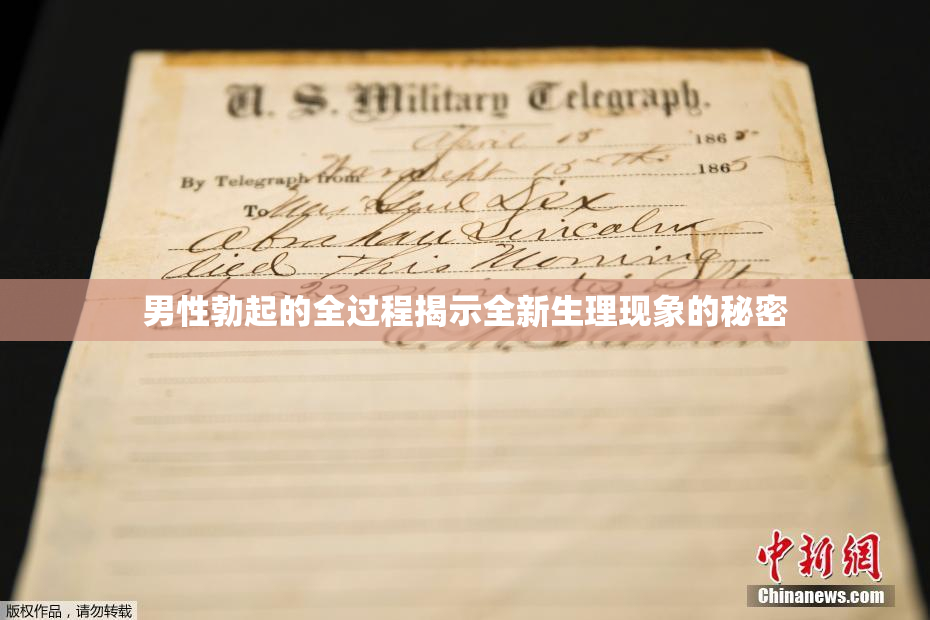 U. S. Military Telegraph.
April 15 1865
By Telegraph from War Dept 15th 1865
To Maj Genl Dix
Abraham Lincoln
died This Morning
22 minutes after
男性勃起的全过程揭示全新生理现象的秘密
中新网
Chinanews.com
版权作品,请勿转载